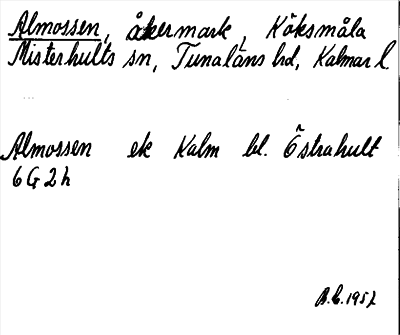 Almossen, åkermark, Köksmåla
Misterhults sn, Tunaläns hd, Kalmar l.
Almossen ek Kalm bl. Östrahult
6G2h
B.E. 1952